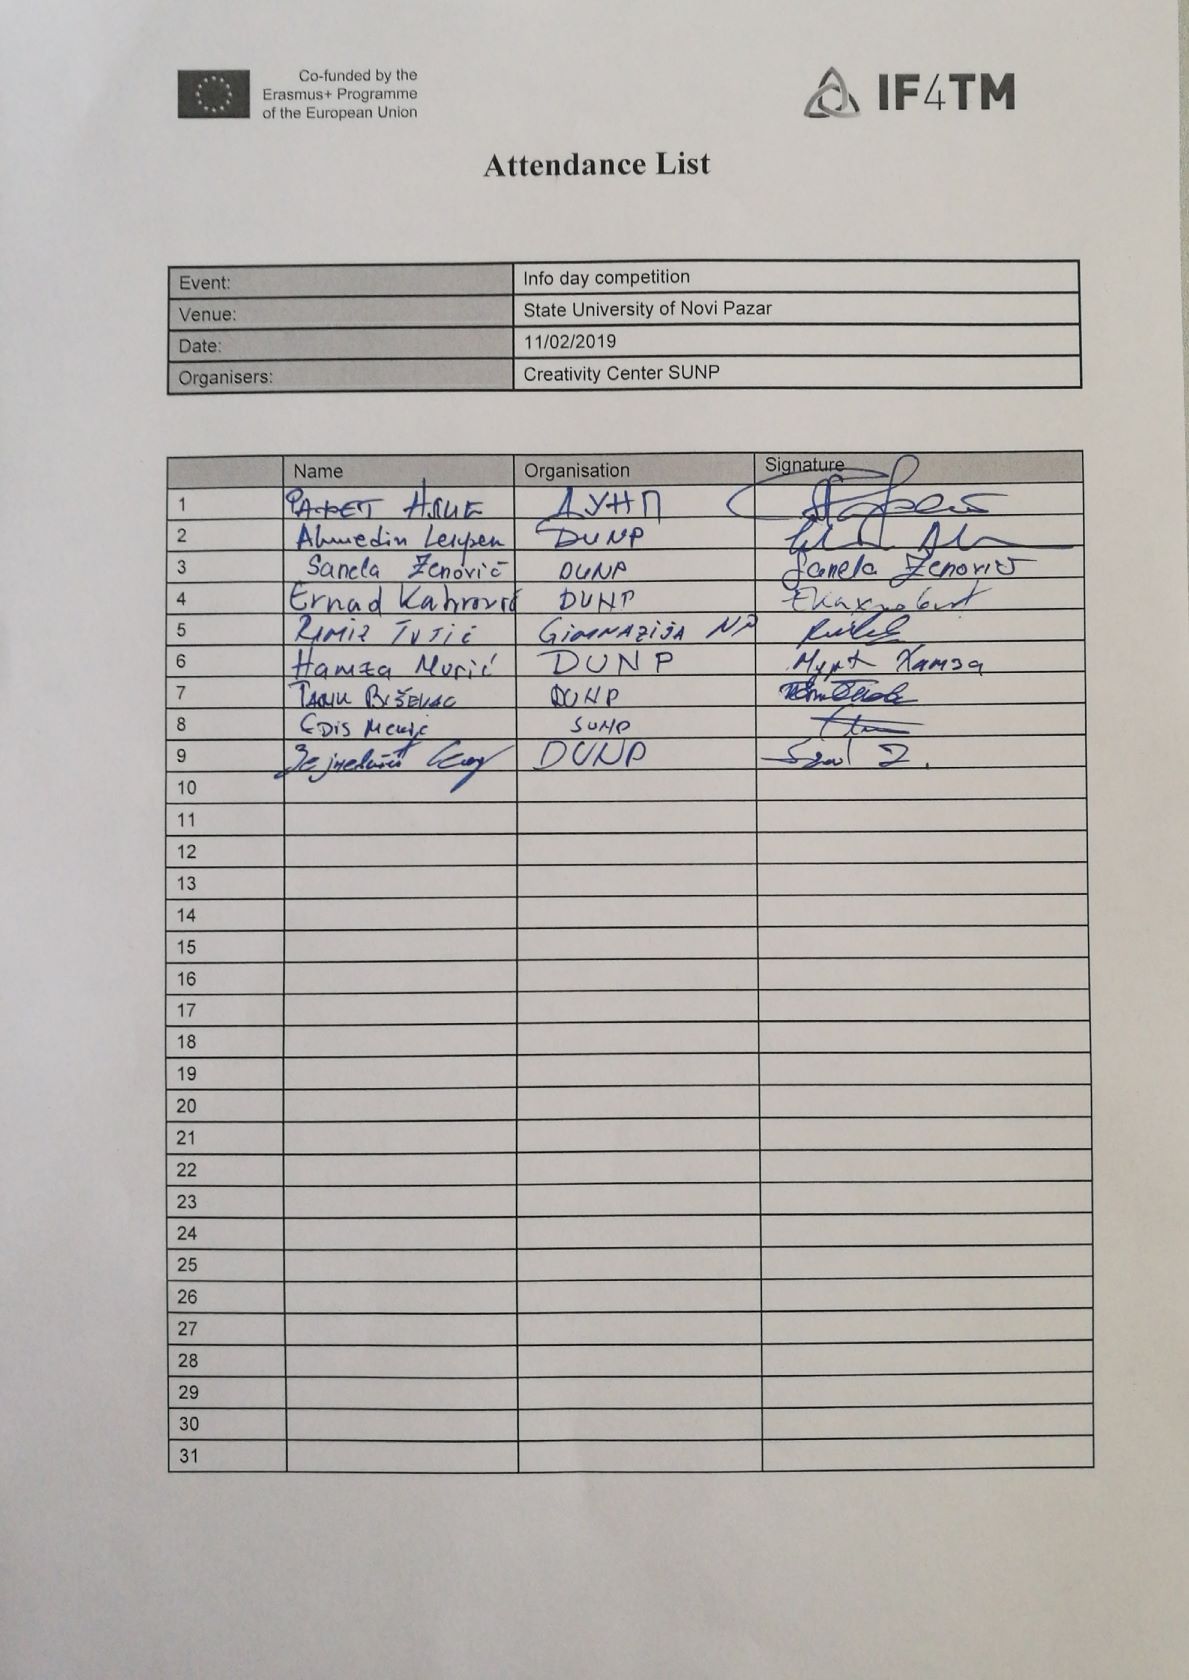 Co-funded by the
Erasmus+ Programme
of the European Union
IF4TM
Attendance List
Event: Info day competition
Venue: State University of Novi Pazar
Date: 11/02/2019
Organisers: Creativity Center SUNP
Name Organisation Signature
1 ДУНП
2 Ahmedin DUNP
3 Sanela Zenović DUNP Sanela Zenović
4 Ernad Kahrović DUNP
5 RAMIZ TUTIĆ GIMNAZIJA NP
6 Hamza Murić DUNP Хамза
7 BIŠEVAC DUNP
8 EDIS SUNP
9 DUNP
10
11
12
13
14
15
16
17
18
19
20
21
22
23
24
25
26
27
28
29
30
31